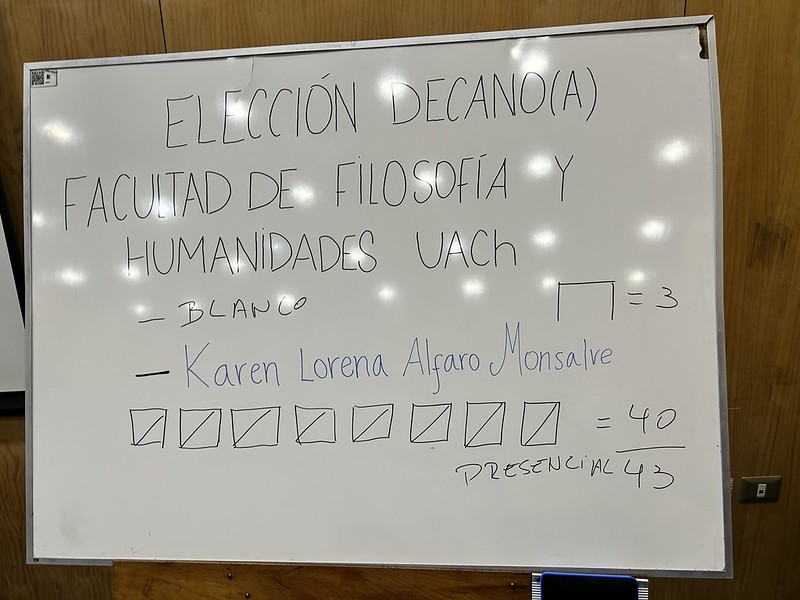 ELECCIÓN DECANO(A)
FACULTAD DE FILOSOFÍA Y
HUMANIDADES UACh
– BLANCO = 3
– Karen Lorena Alfaro Monsalve
= 40
PRESENCIAL 43